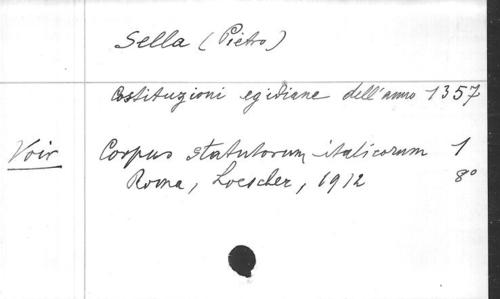 Sella (Pietro)
Costituzioni egidiane dell'anno 1357
Voir Corpus statutorum italicorum 1
Roma, Loescher, 1912 8°